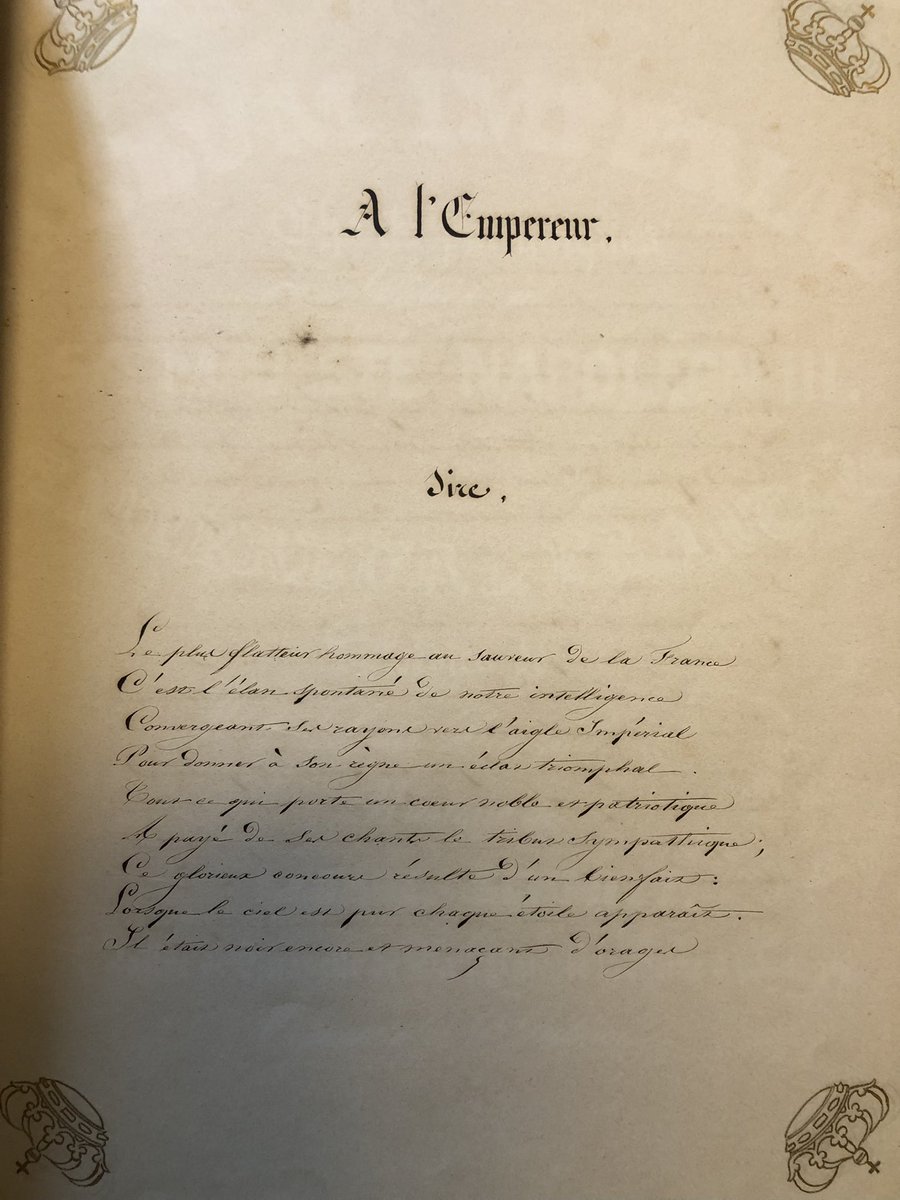 A l'Empereur.
Sire,
Le plus flatteur hommage au sauveur de la France
C'est l'élan spontané de notre intelligence
Convergeant ses rayons vers l'aigle Impérial
Pour donner à son règne un éclat triomphal.
Tout ce qui porte un cœur noble et patriotique
A payé de ses chants le tribut sympathique;
Ce glorieux concours résulte d'un bienfait:
Lorsque le ciel est pur chaque étoile apparaît.
Il était noir encore et menaçant d'orages